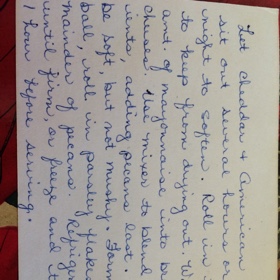 Let cheddar & American
sit out several hours or
night to soften. Roll in
to keep from drying out.
amt. of mayonnaise into
cheese. Use mixer to blend
ients, adding pecans last.
be soft, but not mushy. Form
ball, roll in parsley flakes
mainder of pecans.
until firm, or freeze and
1 hour before serving.